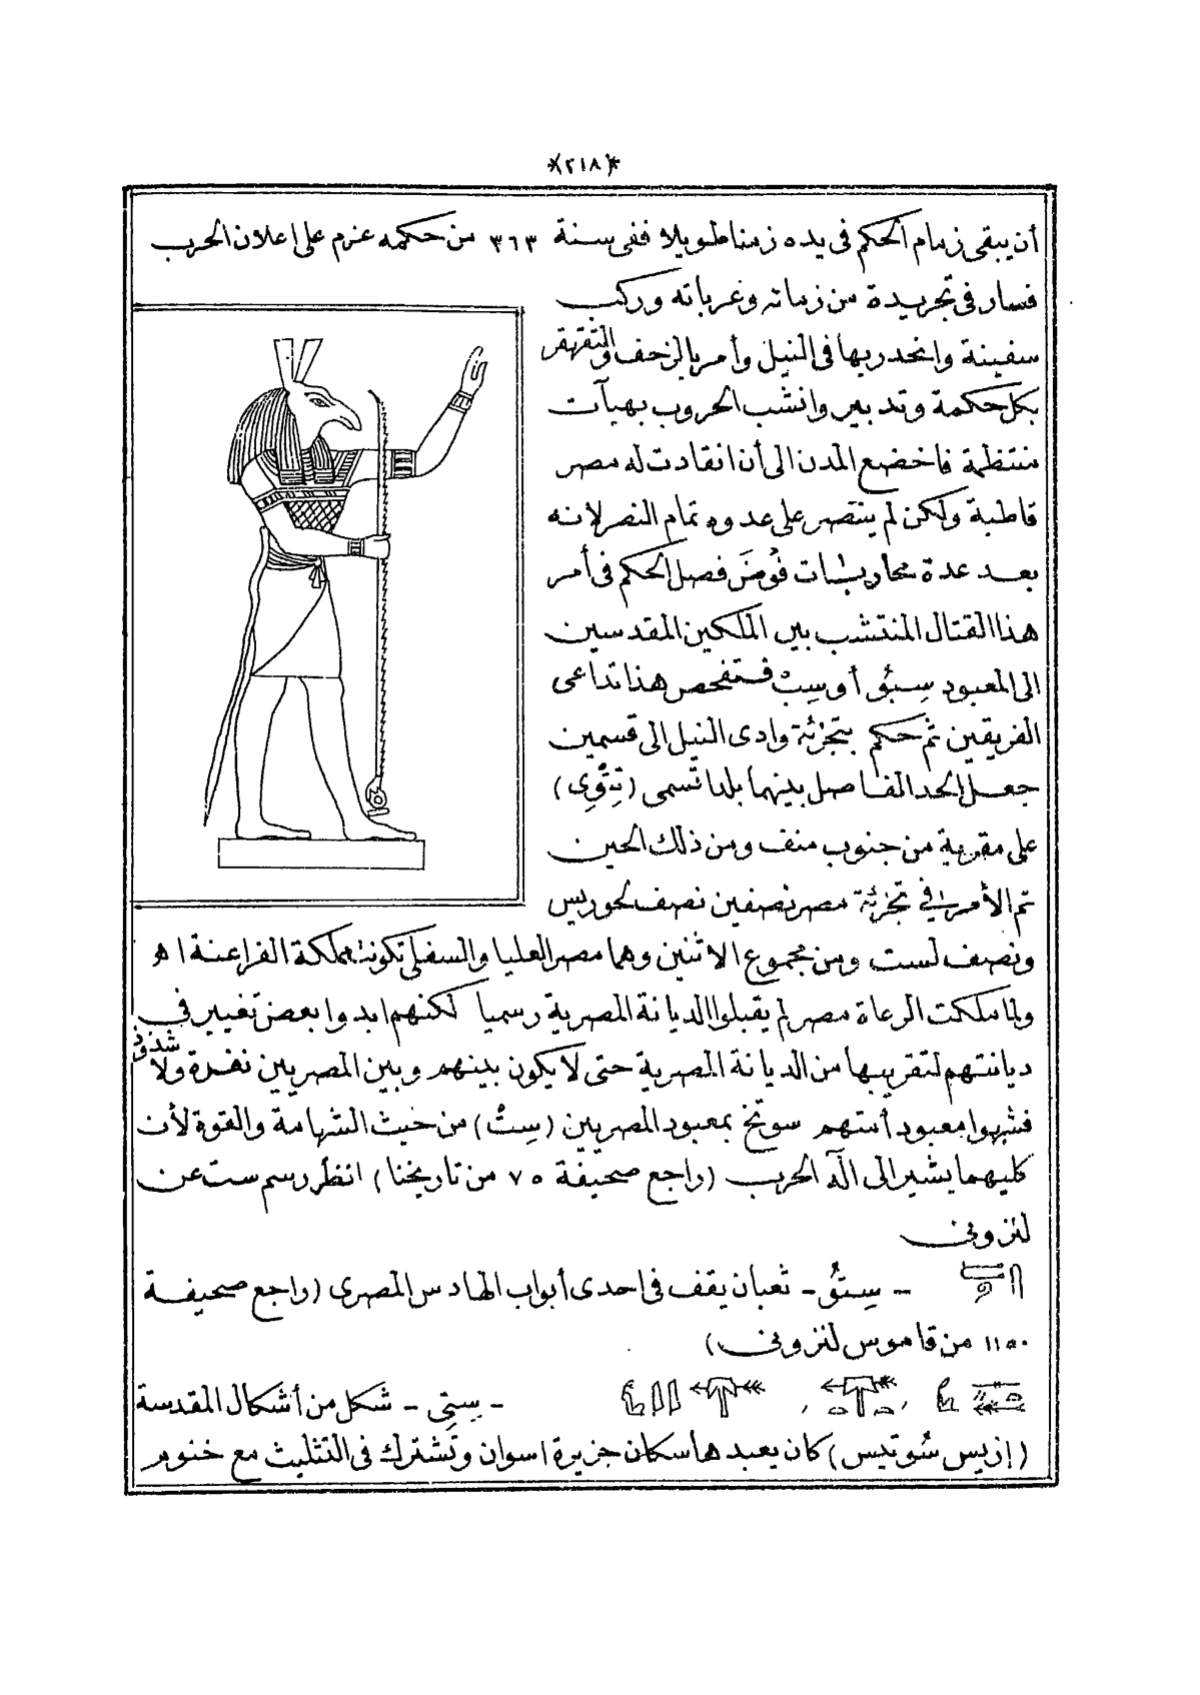 *(٢١٨)*
أن يبقى زمام الحكم فى يده زمنا طويلا ففى سنة ٣٦٣ من حكمه عزم على اعلان الحرب
فسار فى تجريدة من زماته وعرباته وركب
سفينة وانحدر بها فى النيل وأمر بالزحف والتقهقر
بكل حكمة وتدبير وانشب الحروب بهيآت
منتظمة فاخضع المدن الى أن انقادت له مصر
قاطبة ولكن لم ينتصر على عدوه تمام النصر لانه
بعد عدة محاربات فوض فصل الحكم فى أمر
هذا القتال المنتشب بين الملكين المقدسين
الى المعبود سِبُو أوسِبْ فتفحص هذا تداعى
الفريقين ثم حكم بتجزئة وادى النيل الى قسمين
جعل الحد الفاصل بينهما بلدا تسمى (تِتْوِى)
على مقربة من جنوب منف ومن ذلك الحين
تم الأمر فى تجزئة مصر نصفين نصف لحوريس
ونصف لست ومن مجموع الاثنين وهما مصر العليا والسفلى تكونت مملكة الفراعنة اه
ولما ملكت الرعاة مصر لم يقبلوا الديانة المصرية رسميا لكنهم ابدوا بعض تغيير فى
ديانتهم لتقريبها من الديانة المصرية حتى لا يكون بينهم وبين المصريين نفرة ولا شذوذ
فشبهوا معبود أمتهم سوتخ بمعبود المصريين (سِتْ) من حيث الشهامة والقوة لأن
كليهما يشير الى اله الحرب (راجع صحيفة ٧٥ من تاريخنا) انظر رسم ست عن
لنزونى
- سِتُو - ثعبان يقف فى احدى أبواب الهادس المصرى (راجع صحيفة
١١٥٠ من قاموس لنزونى)
- سِتِى - شكل من أشكال المقدسة
(ازيس سُوتيس) كان يعبدها سكان جزيرة اسوان وتشترك فى التثليث مع خنوم